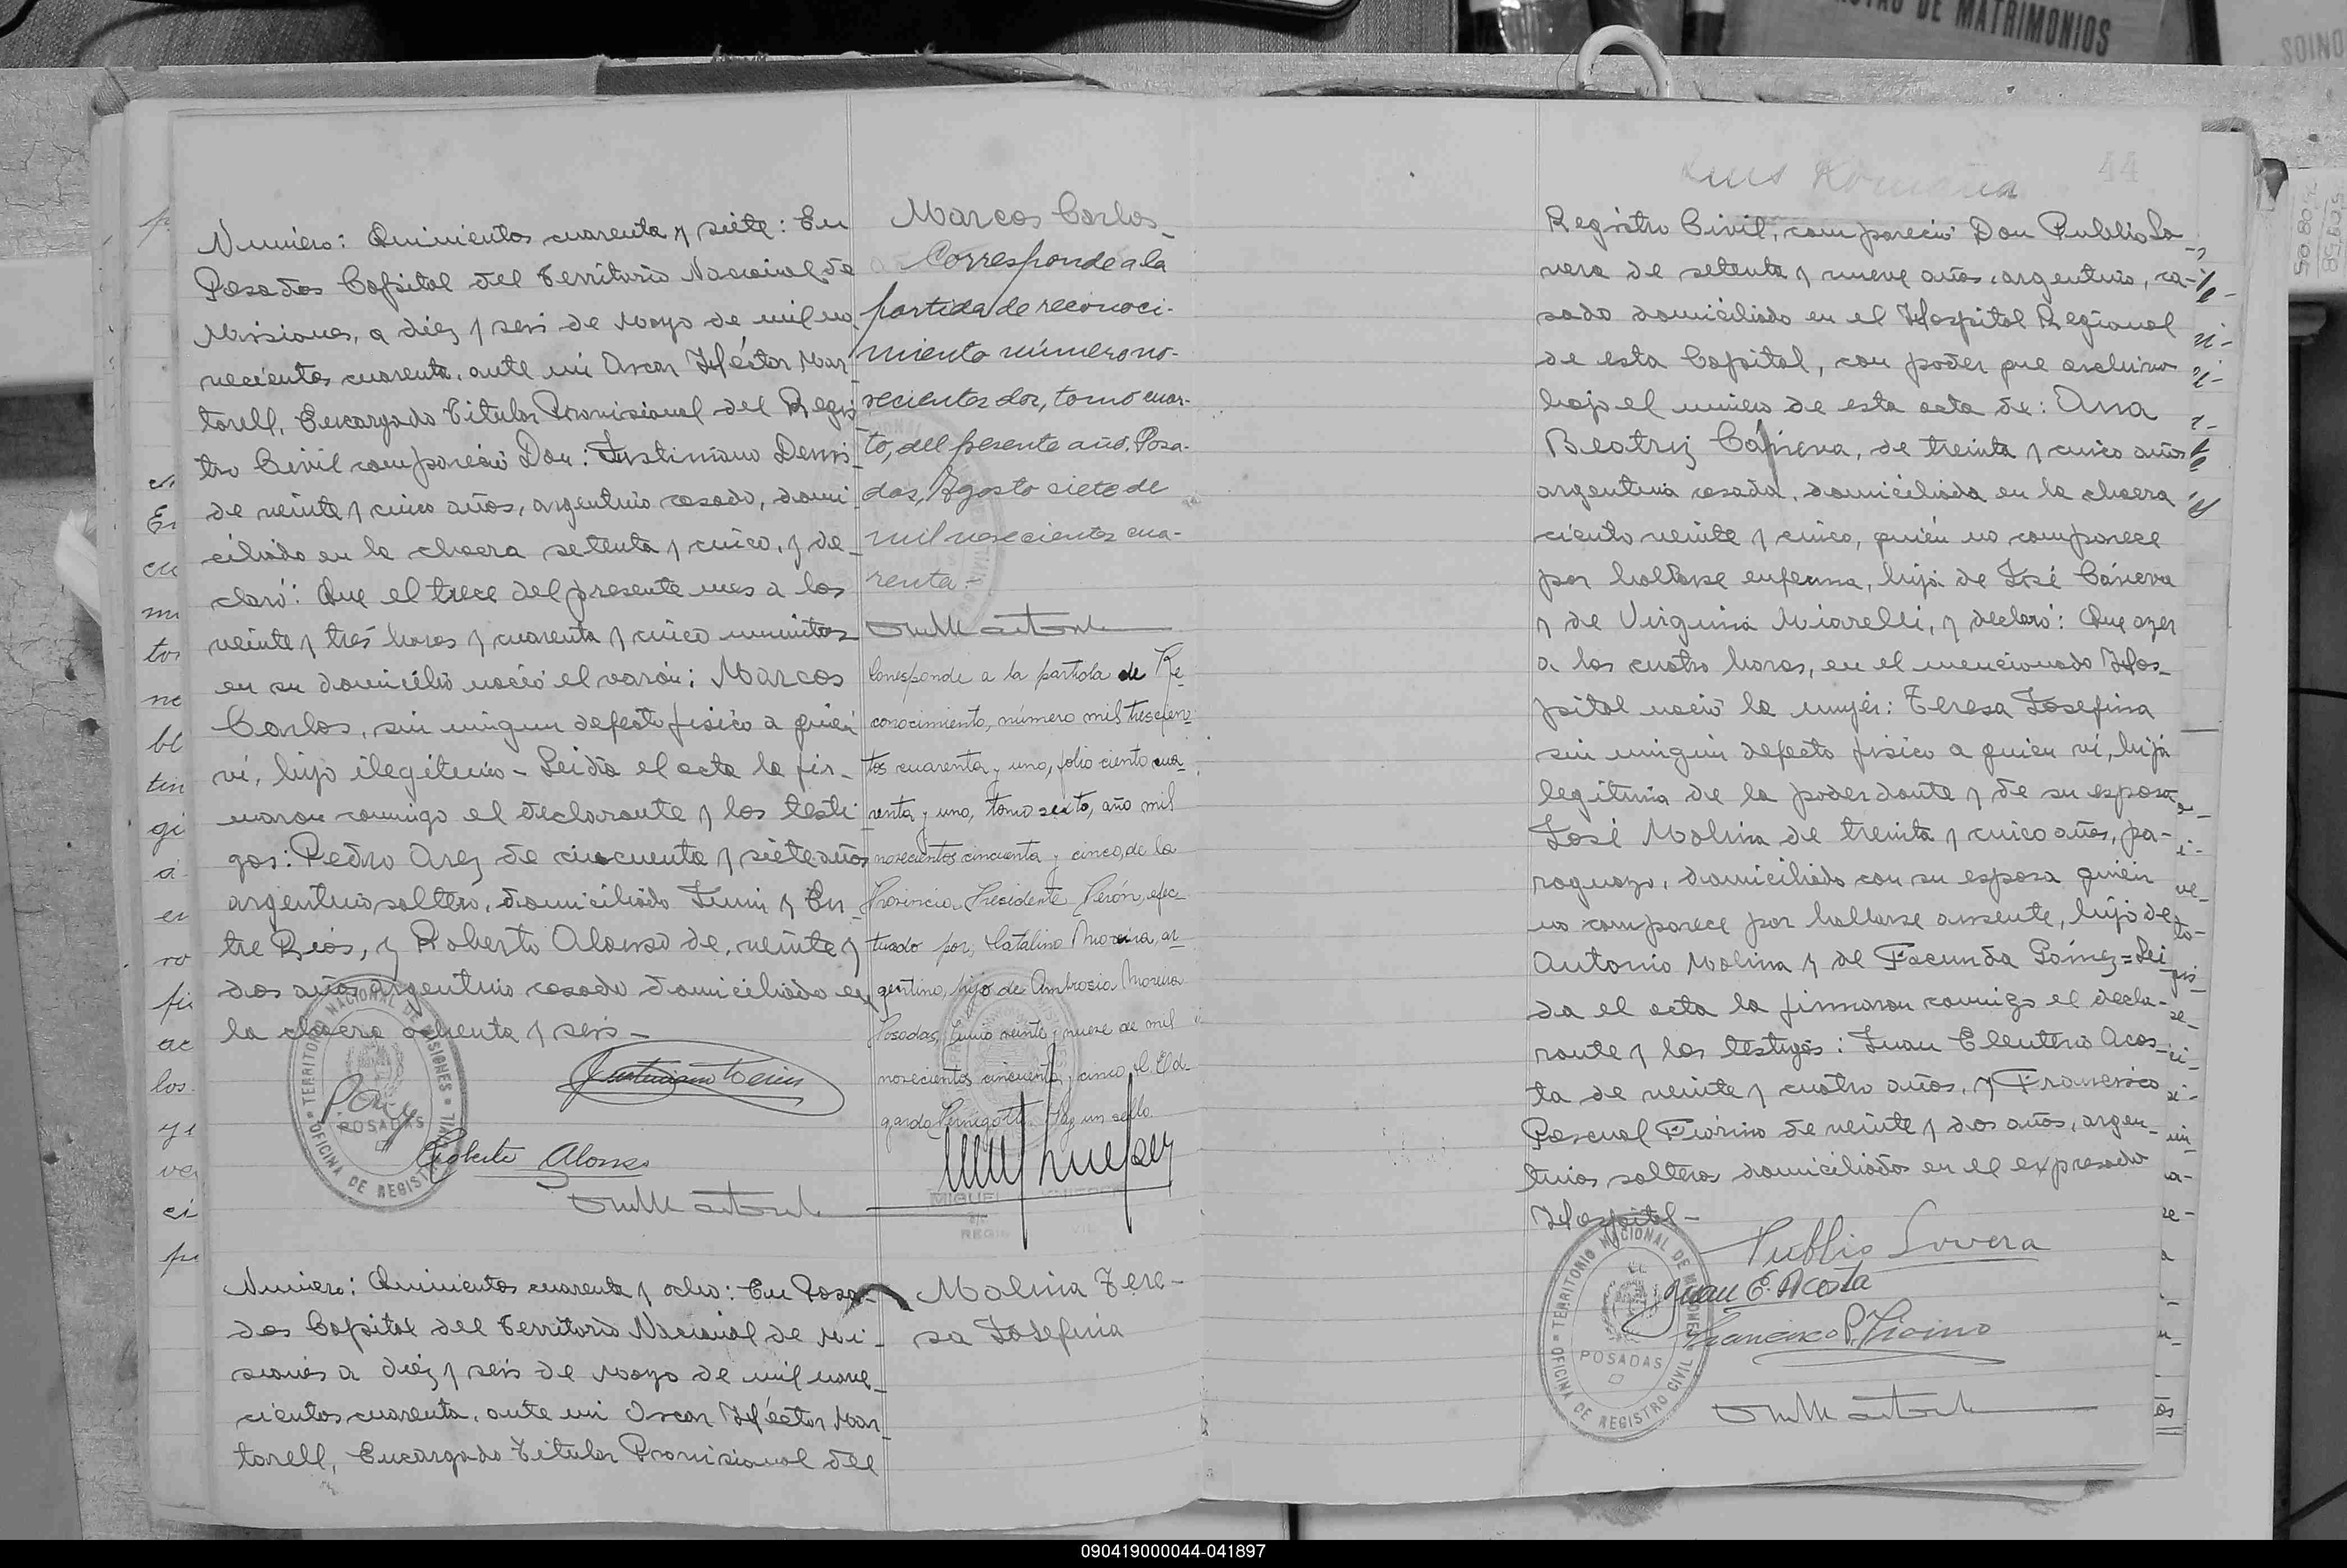 DE MATRIMONIOS
Numero: Quinientos cuarenta y siete: En
Posadas Capital del Territorio Nacional de
Misiones, a diez y seis de Mayo de mil no
vecientos cuarenta, ante mi Oscar Héctor Mar
torell, Encargado Titular Provisional del Regis
tro Civil compareció Don: Justiniano Denis
de veinte y cinco años, argentino casado, domi
ciliado en la chacra setenta y cinco, y de
claró: Que el trece del presente mes a las
veinte y tres horas y cuarenta y cinco minutos
en su domicilio nació el varón: Marcos
Carlos, sin ningun defecto fisico a quien
vi, hijo ilegítimo - Leida el acta la fir-
maron conmigo el declarante y los testi
gos: Pedro Arez de cincuenta y siete años
argentino soltero, domiciliado Junin y En
tre Rios, y Roberto Alonso de, veinte y
dos años argentino casado domiciliado en
la chacra ochenta y seis -
Roberto Alonso
TERRITORIO NACIONAL DE MISIONES
POSADAS
OFICINA DE REGISTRO CIVIL
Marcos Carlos -
Corresponde a la
partida de reconoci-
miento número no-
vecientos dos, tomo cuar-
to, del presente año. Posa-
das, Agosto siete de
mil novecientos cua-
renta -
Corresponde a la partida de Re-
conocimiento, número mil trescien-
tos cuarenta y uno, folio ciento cua-
renta y uno, tomo sexto, año mil
novecientos cincuenta y cinco, de la
Provincia Presidente Perón, efec-
tuado por, Catalino Moreira, ar-
gentino, hijo de Ambrosia Moreira
Posadas, Junio veinte y nueve de mil
novecientos cincuenta y cinco
Hay un sello
MIGUEL
Numero: Quinientos cuarenta y ocho: En Posa-
das Capital del Territorio Nacional de Mi-
siones a diez y seis de Mayo de mil nove-
cientos cuarenta, ante mi Oscar Héctor Mar
torell, Encargado Titular Provisional del
Molina Tere-
sa Josefina
Luis Romaña
44
Registro Civil, compareció Don Publio Lo-
vera de setenta y nueve años, argentino, ca-
sado domiciliado en el Hospital Regional
de esta Capital, con poder que archivo
bajo el número de esta acta de: Ana
Beatriz Cáneva, de treinta y cinco años
argentina casada, domiciliada en la chacra
ciento veinte y cinco, quién no comparece
por hallarse enferma, hija de José Cáneva
y de Virginia Miarelli, y declaró: Que ayer
a las cuatro horas, en el mencionado Hos-
pital nació la mujer: Teresa Josefina
sin ningún defecto fisico a quien ví, hija
legítima de la poderdante y de su esposo
José Molina de treinta y cinco años, pa-
raguayo, domiciliado con su esposa quien
no comparece por hallarse ausente, hijo de
Antonio Molina y de Facunda Gómez = Lei
da el acta la firmaron conmigo el decla-
rante y los testigos: Juan Eleuterio Acos-
ta de veinte y cuatro años, y Francisco
Pascual Fiorino de veinte y dos años, argen-
tinos solteros domiciliados en el expresado
Hospital -
Publio Lovera
Juan E. Acosta
Francisco P. Fiorino
TERRITORIO NACIONAL DE MISIONES
POSADAS
OFICINA DE REGISTRO CIVIL
090419000044-041897